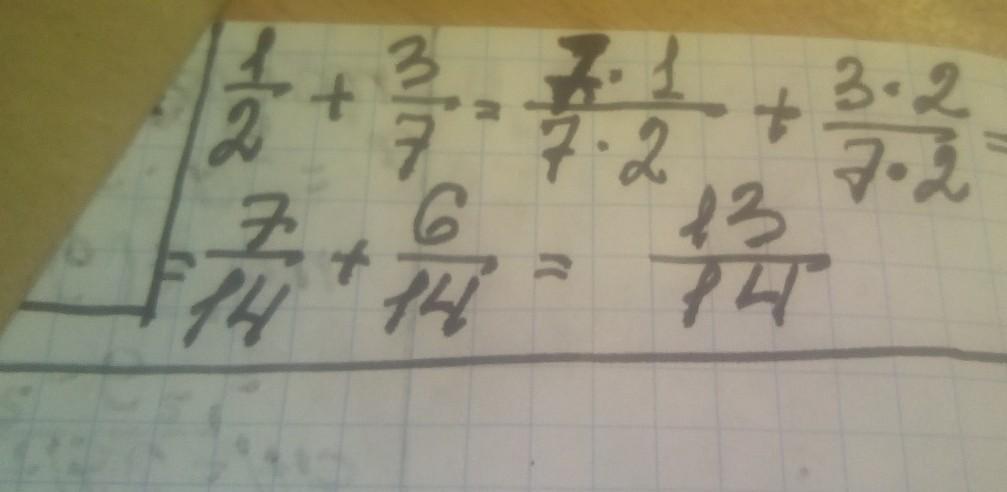 1/2 + 3/7 = 7·1/7·2 + 3·2/7·2 =
= 7/14 + 6/14 = 13/14